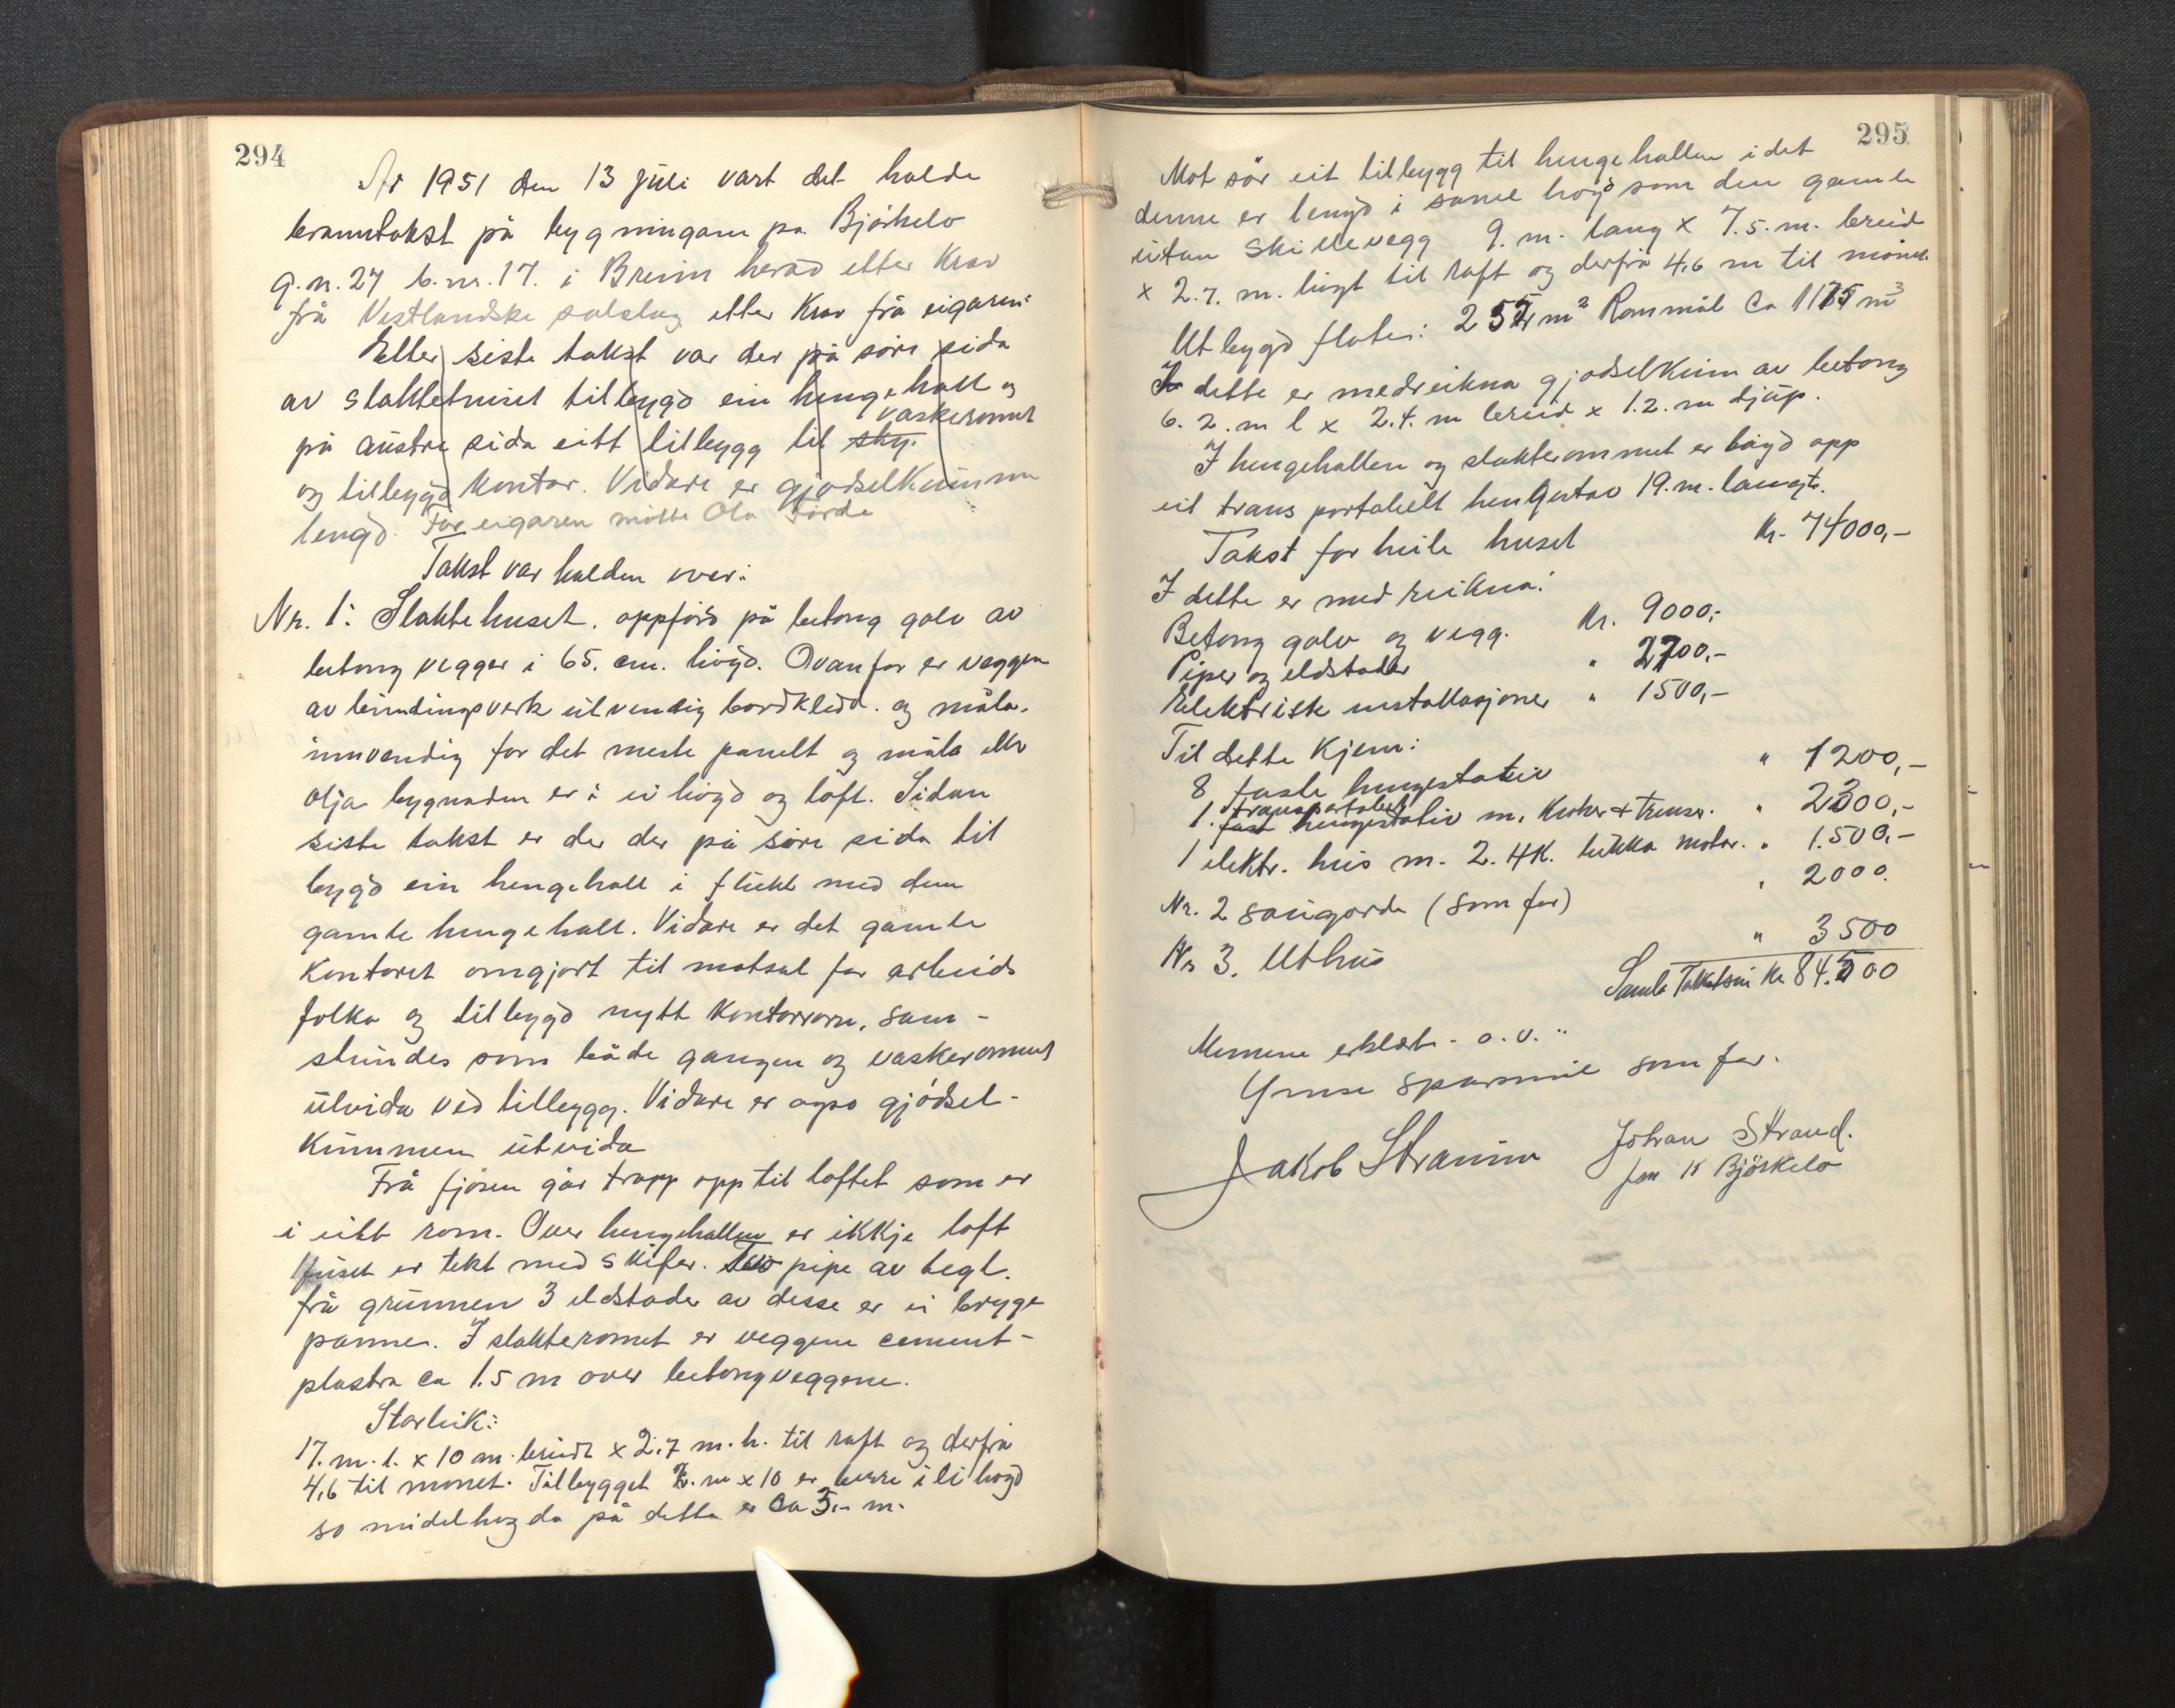 294
År 1951 den 13 juli vart det halde
branntakst på bygningane på Bjørkelo
g.n. 27 b.nr. 17. i Breim herad etter krav
frå Vestlandske salslag etter krav frå eigaren:
Etter siste takst var der på søre sida
av slaktehuset tilbygd ein hengehall og
vaskeromet
på austre sida eitt tilbygg til
og tilbygd kontor. Vidare er gjødselkummen
bygd. For eigaren møtte Ola Førde
Takst var halden over:
Nr. 1: Slaktehuset. oppført på betong golv av
betong vegger i 65. cm. høgd. Ovanfor er veggen
av bindingsverk utvendig bordkledd. og måla.
innvendig for det meste panelt og måla eller
olja bygnaden er i ei høgd og loft. Sidan
siste takst er der der på søre sida til
bygd ein hengehall i flukt med den
gamle hengehall. Vidare er det gamle
Kontoret omgjort til matsal for arbeids
folka og tilbygd nytt Kontorrom, sam-
stundes som både gangen og vaskeromet
utvida ved tilbygg. Vidare er også gjødsel-
kummen utvida
Frå fjøsen går trapp opp til loftet som er
i eitt rom. Over hengehallen er ikkje loft
Huset er tekt med skifer. Two pipe av tegl.
frå grunnen 3 eldstader av desse er ei brygge
panne. I slakteromet er veggene cement-
plastra ca 1.5 m over betongveggene.
Storleik:
17. m. l. x 10 m. breidt x 2,7 m. h. til raft og derfrå
4,6 til mønet. Tilbygget m x 10 er berre i ei høgd
so midelhøgda på dette er ca 3,- m.
295
Mot sør eit tilbygg til hengehallen i det
denne er bygd i same høgd som den gamle
utan skillevegg 9. m. lang x 7.5. m. breid
x 2.7. m. høgt til raft og derfrå 4,6 m til mønet.
Utbygd flate: m² Rommål ca 1175 m³
I dette er medreikna gjødselkum av betong
6. 2. m l x 2.4. m breid x 1.2. m djup.
I hengehallen og slakterommet er bygd opp
eit transportabelt hengestav 19. m. langt.
Takst for heile huset Kr. 74000,-
I dette er med reikna:
Betong golv og vegg. Kr. 9000,-
Piper og eldstader " 2700,-
Elektriske installasjoner " 1500,-
Til dette kjem:
8 faste hengestativ " 1200,-
transportabelt
1. fast hengestativ m. kroker & trinser. " 2300,-
1 elektr. heis m. 2. HK. tukka motor. " 1.500,-
Nr. 2 saugarde (som før) " 2000.
Nr 3. Uthus " 3500
Samla Takstsum Kr 84.500
Mennene erklært. o.v. "
Ymse spørsmål som før.
Jakob Straume Johan Strand.
Jon K Bjørkelo